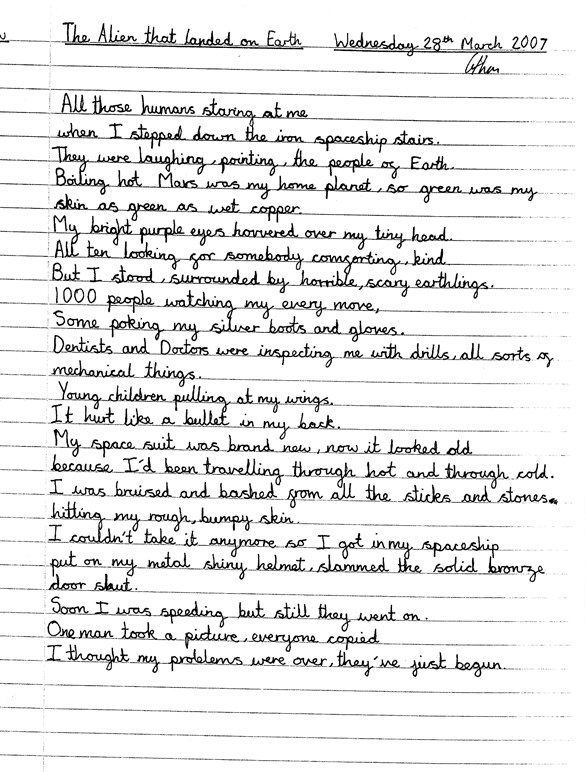 The Alien that landed on Earth Wednesday 28th March 2007
All those humans staring at me
when I stepped down the iron spaceship stairs.
They were laughing, pointing, the people of Earth.
Boiling hot Mars was my home planet, so green was my
skin as green as wet copper.
My bright purple eyes hovvered over my tiny head.
All ten looking for somebody comforting, kind.
But I stood, surrounded by horrible, scary earthlings.
1000 people watching my every move,
Some poking my silver boots and gloves.
Dentists and Doctors were inspecting me with drills, all sorts of
mechanical things.
Young children pulling at my wings.
It hurt like a bullet in my back.
My space suit was brand new, now it looked old
because I'd been travelling through hot and through cold.
I was bruised and bashed from all the sticks and stones
hitting my rough, bumpy skin.
I couldn't take it anymore so I got in my spaceship
put on my metal shiny helmet, slammed the solid bronze
door shut.
Soon I was speeding but still they went on.
One man took a picture, everyone copied
I thought my problems were over, they've just begun.